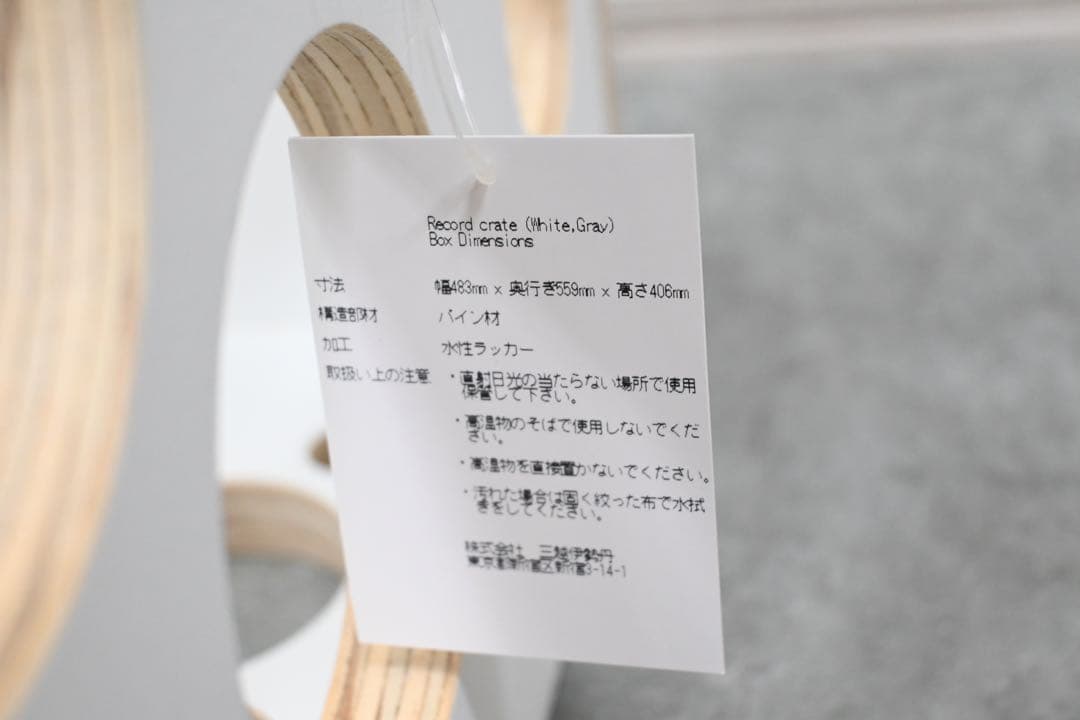 Record crate (White,Gray)
Box Dimensions
寸法 幅483mm × 奥行き559mm × 高さ406mm
構造部材 パイン材
加工 水性ラッカー
取扱い上の注意 ・直射日光の当たらない場所で使用
保管して下さい。
・高温物のそばで使用しないでくだ
さい。
・高温物を直接置かないでください。
・汚れた場合は固く絞った布で水拭
きをしてください。
株式会社 三越伊勢丹
東京都新宿区新宿3-14-1